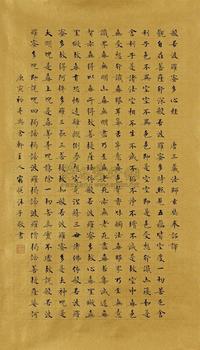 般若波羅蜜多心經 唐三藏法師玄奘奉詔譯
觀自在菩薩行深般若波羅蜜多時照見五蘊皆空度一切苦厄舍
利子色不異空空不異色色即是空空即是色受想行識亦復如是
舍利子是諸法空相不生不滅不垢不淨不增不減是故空中無色
無受想行識無眼耳鼻舌身意無色聲香味觸法無眼界乃至無意
識界無無明亦無無明盡乃至無老死亦無老死盡無苦集滅道無
智亦無得以無所得故菩提薩埵依般若波羅蜜多故心無罣礙無
罣礙故無有恐怖遠離顛倒夢想究竟涅槃三世諸佛依般若波羅
蜜多故得阿耨多羅三藐三菩提故知般若波羅蜜多是大神咒是
大明咒是無上咒是無等等咒能除一切苦真實不虛故說般若波
羅蜜多咒即說咒曰揭諦揭諦波羅揭諦波羅僧揭諦菩提薩婆訶
庚寅初冬